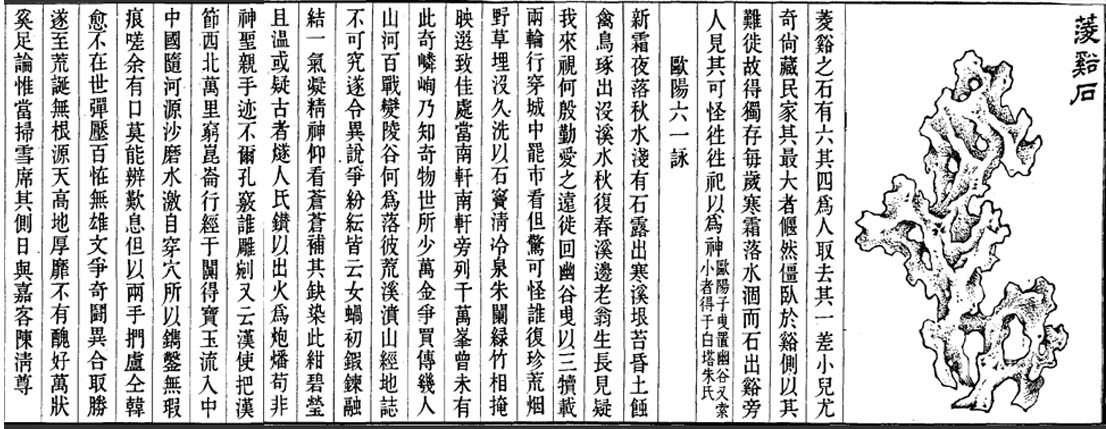 蔆谿石
菱谿之石有六其四爲人取去其一差小兒尤
奇尙藏民家其最大者偃然僵臥於谿側以其
難徙故得獨存每歲寒霜落水涸而石出谿旁
人見其可怪徃徃祀以爲神歐陽子曳置幽谷又索小者得于白塔朱氏
歐陽六一詠
新霜夜落秋水淺有石露出寒溪垠苔昏土蝕
禽鳥琢出沒溪水秋復春溪邊老翁生長見疑
我來視何殷勤愛之遠徙回幽谷曳以三犢載
兩輪行穿城中罷市看但驚可怪誰復珍荒烟
野草埋沒久洗以石竇淸冷泉朱闌緑竹相掩
映選致佳處當南軒南軒旁列千萬峯曾未有
此奇嶙峋乃知奇物世所少萬金爭買傳幾人
山河百戰變陵谷何爲落彼荒溪濆山經地誌
不可究遂令異說爭紛紜皆云女媧初鍜鍊融
結一氣凝精神仰看蒼蒼補其缺染此紺碧瑩
且温或疑古者燧人氏鑽以出火爲炮燔苟非
神聖親手迹不爾孔竅誰雕剜又云漢使把漢
節西北萬里窮崑崙行經于闐得寶玉流入中
中國隨河源沙磨水激自穿穴所以鐫鑿無瑕
痕嗟余有口莫能辨歎息但以兩手捫盧仝韓
愈不在世彈壓百恠無雄文爭奇鬭異合取勝
遂至荒誕無根源天高地厚靡不有醜好萬狀
奚足論惟當掃雪席其側日與嘉客陳淸尊